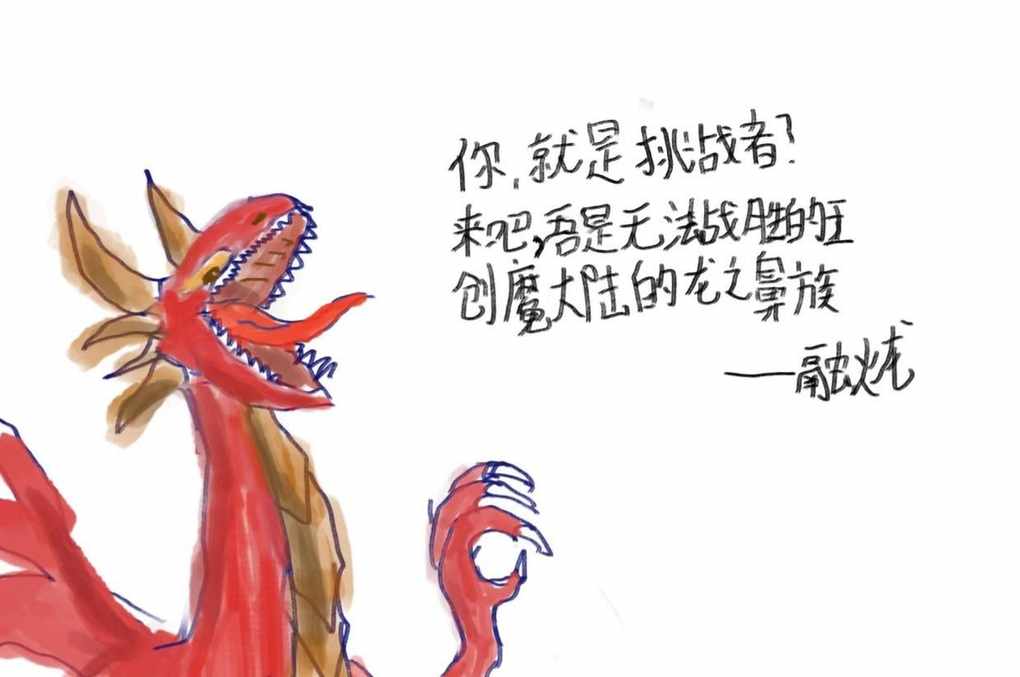 你,就是挑战者?
来吧,吾是无法战胜的王
创魔大陆的龙之鼻族
——融火龙